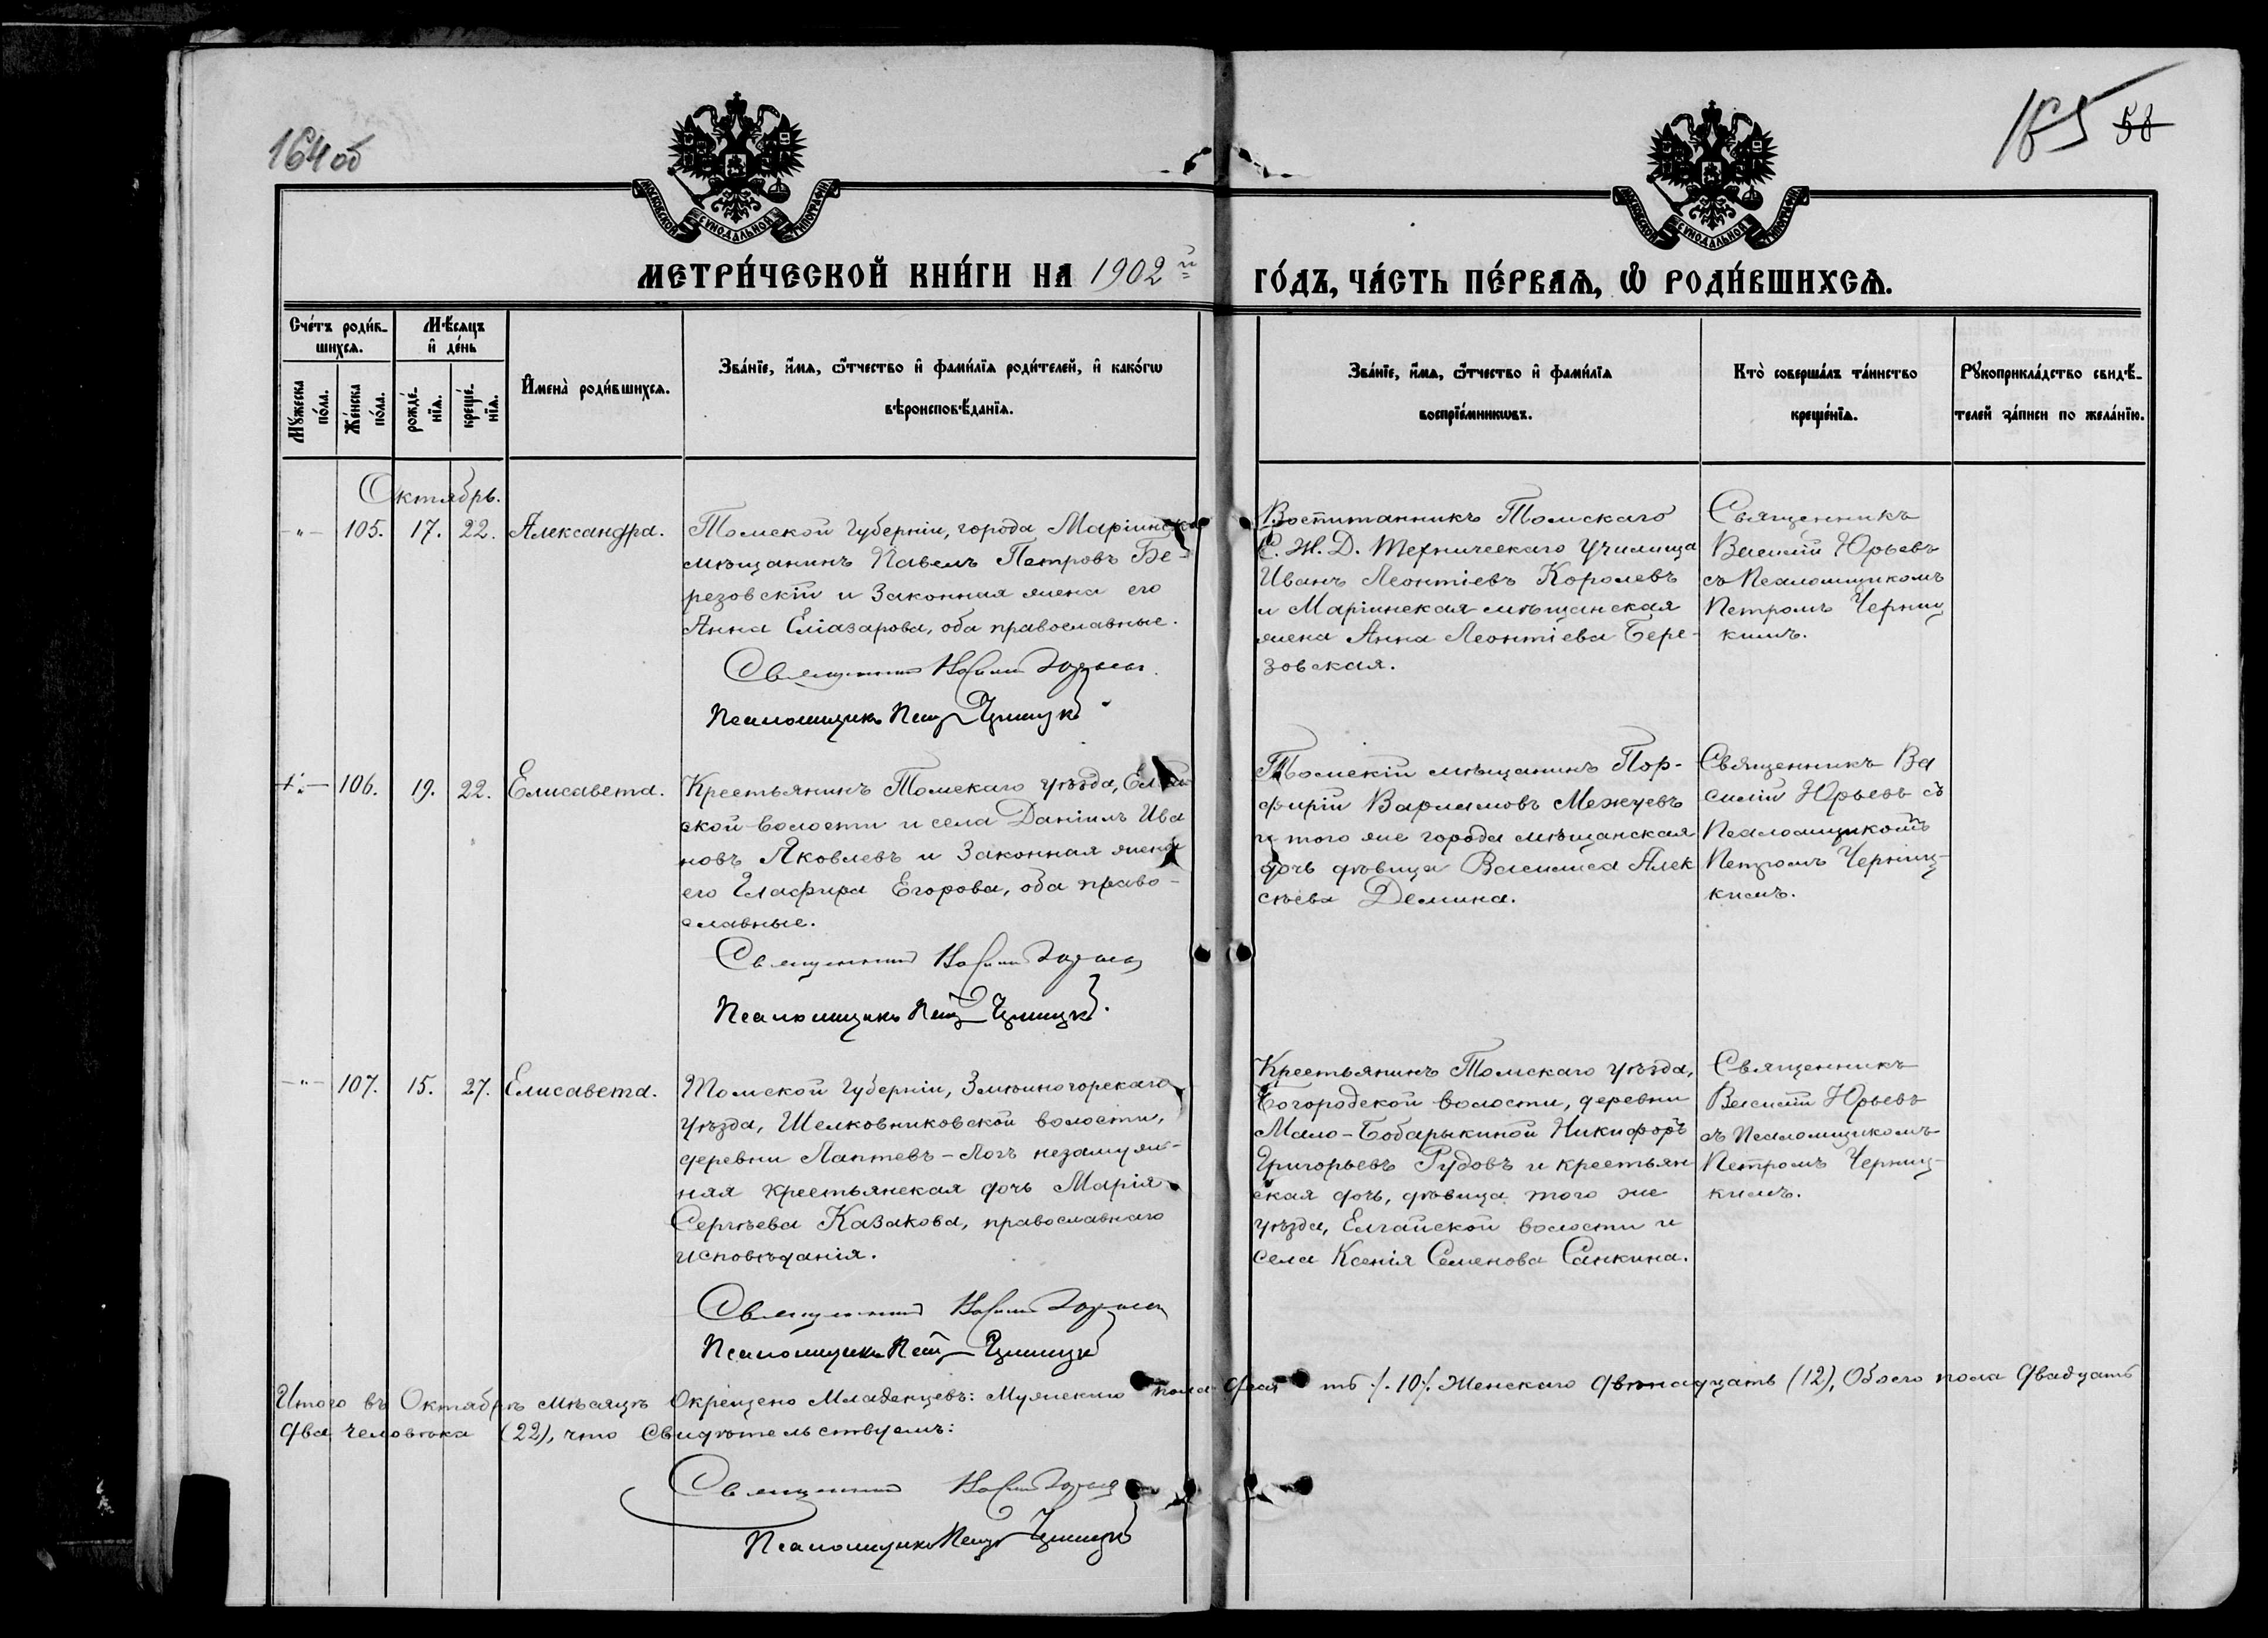 164 об
165 58
МОСКОВСКОЙ СѴНОДАЛЬНОЙ ТИПОГРАФІИ
МОСКОВСКОЙ СѴНОДАЛЬНОЙ ТИПОГРАФІИ
МЕТРИ́ЧЕСКОЙ КНИ́ГИ НА 1902 й ГО́ДЪ, ЧА́СТЬ ПЕ́РВАѦ, Ѽ РОДИ́ВШИХСѦ.
Сче́тъ роди́в-
шихсѧ.
Мꙋ́жеска по́ла.
Же́нска по́ла.
Мѣ́сѧцъ
и҆ де́нь
рожде́-
нїѧ.
креще́-
нїѧ.
И҆мена̀ роди́вшихсѧ.
Зва́нїе, и҆́мѧ, ѻ҆́тчество и҆ фами́лїѧ роди́телей, и҆ како́гѡ
вѣроисповѣ́данїѧ.
Зва́нїе, и҆́мѧ, ѻ҆́тчество и҆ фами́лїѧ
воспрїе́мникѡвъ.
Кто̀ соверша́лъ та́инство
креще́нїѧ.
Рꙋкоприкла́дство свидѣ́-
телей за́писи по жела́нїю.
Октябрь.
-"- 105. 17. 22. Александра.
Томской Губерніи, города Маріинска
мѣщанинъ Павелъ Петровъ Бе-
резовскій и Законная жена его
Анна Еліазарова, оба православные.
Священникъ Василій Юрьевъ.
Псаломщикъ Петръ Черницкій
Воспитанникъ Томскаго
С. Ж. Д. Техническаго Училища
Иванъ Леонтіевъ Королевъ
и Маріинская мѣщанская
жена Анна Леонтіева Бере-
зовская.
Священникъ
Василій Юрьевъ
съ Псаломщикомъ
Петромъ Черниц
кимъ.
106. 19. 22. Елисавета.
Крестьянинъ Томскаго уѣзда, Елгай
ской волости и села Даніилъ Ива
новъ Яковлевъ и Законная жена
его Глафира Егорова, оба право-
славные.
Священникъ Василій Юрьевъ
Псаломщикъ Петръ Черницкій.
Томскій мѣщанинъ Пор-
фирій Варламовъ Межуевъ
и того же города мѣщанская
дочь дѣвица Василиса Алек
сѣева Демина.
Священникъ Ва
силій Юрьевъ съ
Псаломщикомъ
Петромъ Черниц-
кимъ.
-"- 107. 15. 27. Елисавета.
Томской Губерніи, Змѣиногорскаго
уѣзда, Шелковниковской волости,
деревни Лаптевъ-Логъ незамуж-
няя крестьянская дочь Марія
Сергѣева Казакова, православнаго
исповѣданія.
Священникъ Василій Юрьевъ
Псаломщикъ Петръ Черницкій
Крестьянинъ Томскаго уѣзда,
Богородской волости, деревни
Мало-Бобарыкиной Никифоръ
Григорьевъ Рудовъ и крестьян
ская дочь, дѣвица того же
уѣзда, Елгайской волости и
села Ксенія Семенова Санкина.
Священникъ
Василій Юрьевъ
съ Псаломщикомъ
Петромъ Черниц-
кимъ.
Итого въ Октябрѣ мѣсяцѣ Окрещено Младенцевъ: Мужскаго пола ть /.10/. Женскаго двѣнадцать (12), Обоего пола двадцать
два человѣка (22), что Свидѣтельствуемъ:
Священникъ Василій Юрьевъ
Псаломщикъ Петръ Черницкій